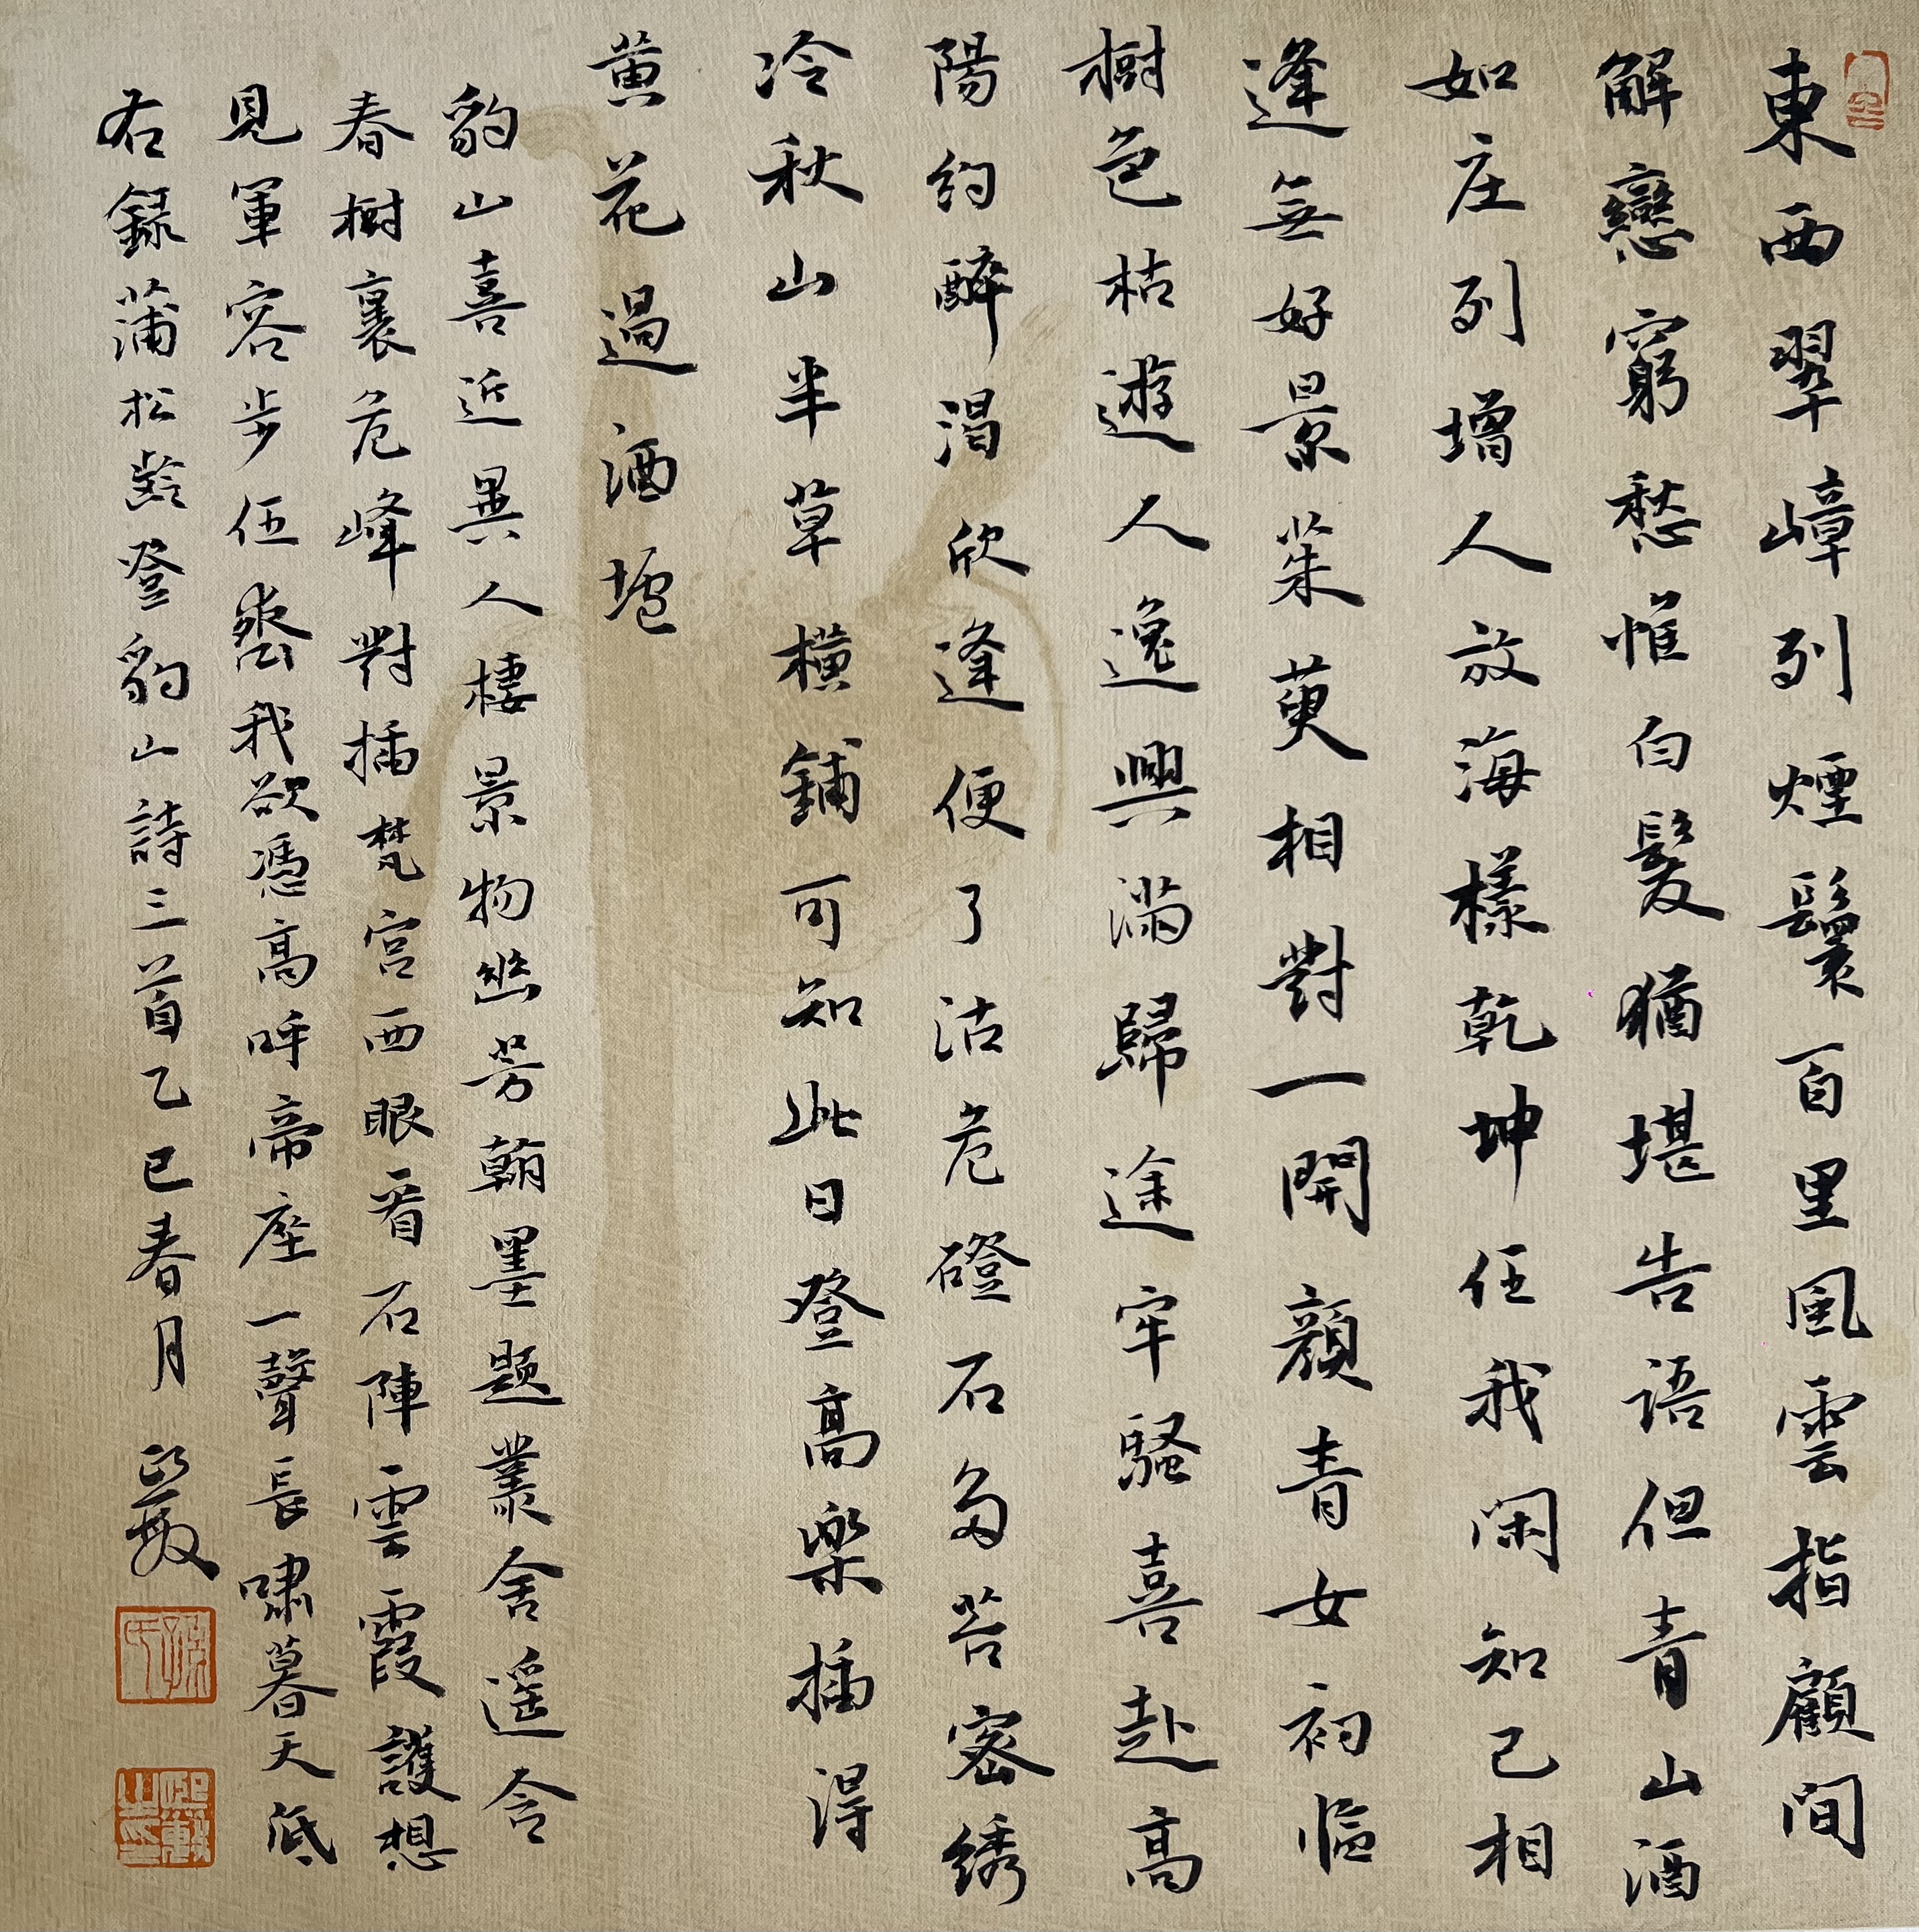 東西翠嶂列煙鬟百里風雲指顧間
解戀窮愁惟白髮猶堪告語但青山酒
如庄列增人放海樣乾坤任我閑知己相
逢無好景茱萸相對一開顏青女初臨
樹色枯遊人逸興滿歸途牢騷喜赴高
陽約醉渴欣逢便了沽危磴石多苔密綉
冷秋山半草橫鋪可知此日登高樂插得
黄花過酒壚
豹山喜近異人棲景物幽芳翰墨題叢舍遥含
春樹裏危峰對插梵宮西眼看石陣雲霞護想
見軍容步伍齊我欲憑高呼帝座一聲長嘯暮天低
右錄蒲松齡登豹山詩三首乙巳春月